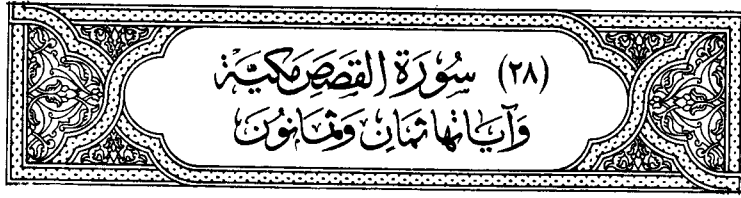 (٢٨) سُورَةُ القَصَصِ مَكيَّة
وَآيَاتُهَا ثَمَانٍ وَثَمَانُونَ